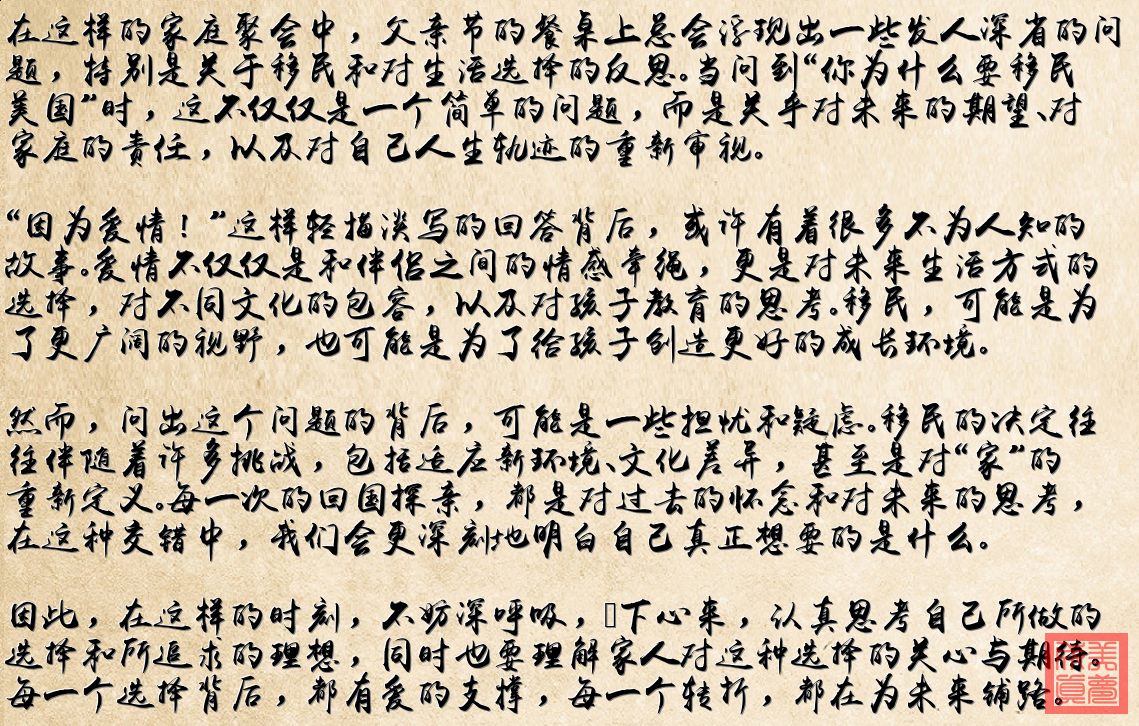 在这样的家庭聚会中，父亲节的餐桌上总会浮现出一些发人深省的问
题，特别是关于移民和对生活选择的反思。当问到“你为什么要移民
美国”时，这不仅仅是一个简单的问题，而是关乎对未来的期望、对
家庭的责任，以及对自己人生轨迹的重新审视。
“因为爱情！”这样轻描淡写的回答背后，或许有着很多不为人知的
故事。爱情不仅仅是和伴侣之间的情感牵绳，更是对未来生活方式的
选择，对不同文化的包容，以及对孩子教育的思考。移民，可能是为
了更广阔的视野，也可能是为了给孩子创造更好的成长环境。
然而，问出这个问题的背后，可能是一些担忧和疑虑。移民的决定往
往伴随着许多挑战，包括适应新环境、文化差异，甚至是对“家”的
重新定义。每一次的回国探亲，都是对过去的怀念和对未来的思考，
在这种交错中，我们会更深刻地明白自己真正想要的是什么。
因此，在这样的时刻，不妨深呼吸，下心来，认真思考自己所做的
选择和所追求的理想，同时也要理解家人对这种选择的关心与期待。
每一个选择背后，都有爱的支撑，每一个转折，都在为未来铺路。